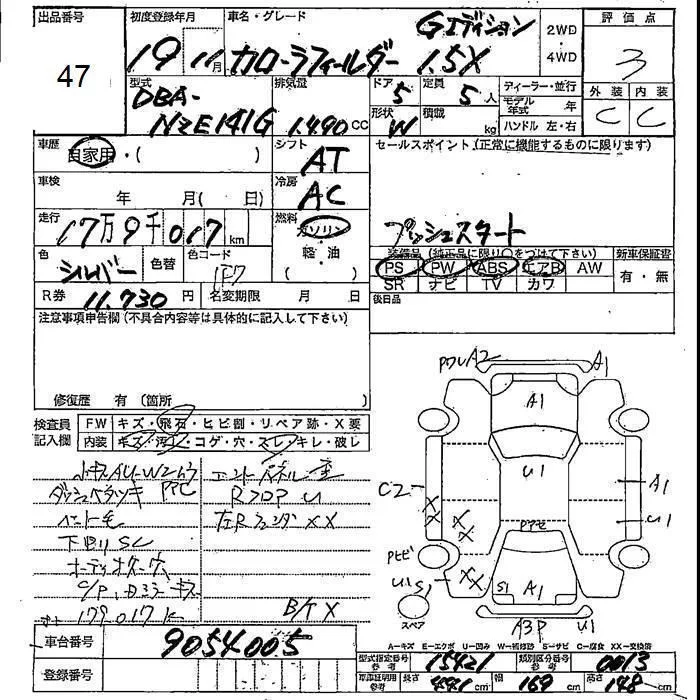 出品番号
47
初度登録年月
19 11月
車名・グレード
Gエディション
カローラフィールダー 1.5X
2WD
4WD
評価点
3
外装 内装
C C
型式
DBA-
NZE141G
排気量
1.490cc
ドア
5
定員
5人
形状
W
積載
kg
ディーラー・並行
モデル年式 年
ハンドル 左・右
車歴
自家用・( )
シフト
AT
セールスポイント (正常に機能するものに限ります)
プッシュスタート
車検
年 月( 日)
冷房
AC
走行
17万9千017km
燃料
ガソリン
軽・油
( )
色
シルバー
色替
色コード
1F7
装備品 (純正品に限り○をつけて下さい)
PS PW ABS エアB AW
SR ナビ TV カワ
新車保証書
有・無
R券 11.730円
名変期限 月 日
後日品
注意事項申告欄 (不具合内容等は具体的に記入して下さい)
修復歴 有 (箇所 )
検査員
記入欄
FW キズ・飛石・ヒビ割・リペア跡・X要
内装 キズ・汚レ・コゲ・穴・スレ・キレ・破レ
R フロア U
左Rフェンダ XX
下回りSC
179.017K
B/T X
A2
A1
A1
U1
C2
XX
XX
A1
U1
U1
S1
XX
S1
A1
スペア
A3P
U1
A―キズ E―エクボ U―凹み W―補修跡 S―サビ C―腐食 XX―交換済
車台番号
9054005
登録番号
型式指定番号 参考
15421
類別区分番号 参考
0013
車庫証明用 参考
長さ 441cm
幅 169cm
高さ 148cm